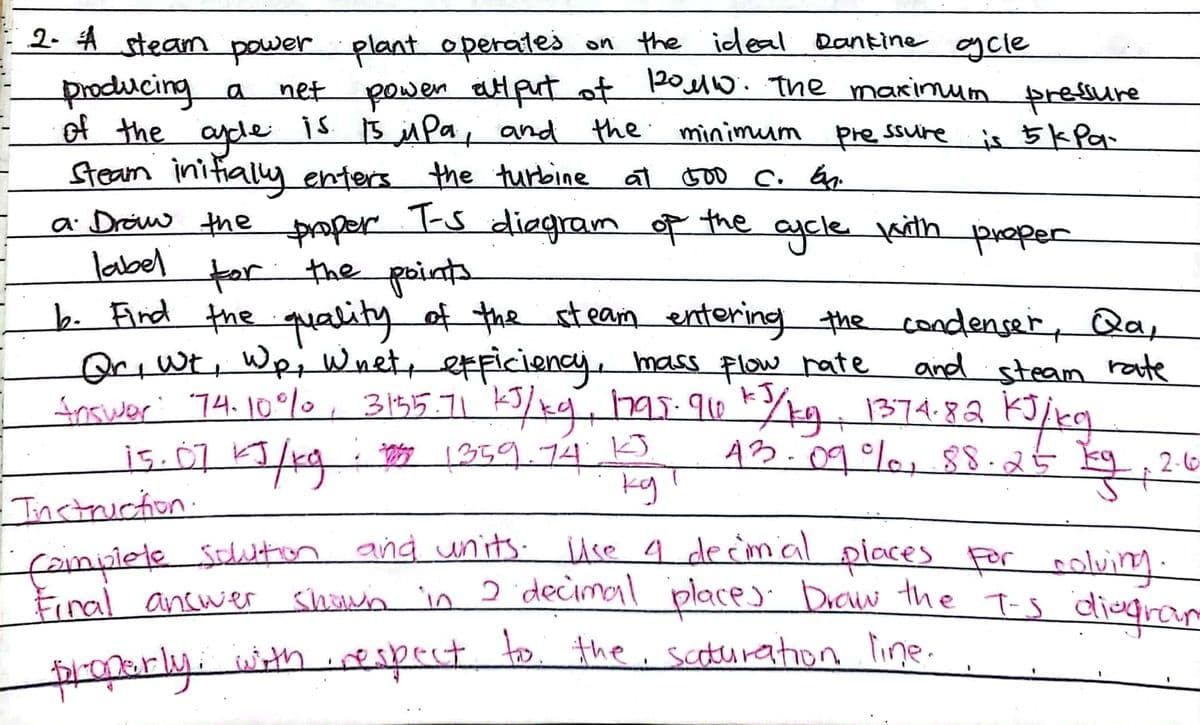 2- A steam power plant operates on the ideal Rankine cycle
producing a net power output of 120 MW. The maximum pressure
of the cycle is 15 MPa, and the minimum pressure is 5 kPa.
Steam initially enters the turbine at 500 C.
a. Draw the proper T-s diagram of the cycle with proper
label for the points
b. Find the quality of the steam entering the condenser, Qa,
Qr, Wt, Wp, Wnet, efficiency, mass flow rate and steam rate
Answer: 74.10%, 3155.71 kJ/kg, 1795.96 kJ/kg, 1374.82 kJ/kg
15.07 kJ/kg ; 1359.74 kJ/kg, 43.09%, 88.25 kg/s, 2.6
Instruction:
Complete solution and units. Use 4 decimal places for solving.
Final answer shown in 2 decimal places. Draw the T-s diagram
properly with respect to the saturation line.